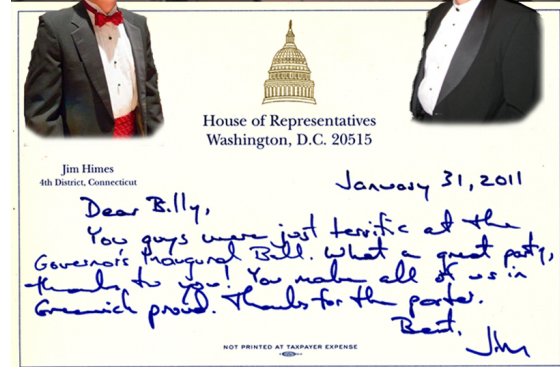 House of Representatives
Washington, D.C. 20515
Jim Himes
4th District, Connecticut
January 31, 2011
Dear Billy,
You guys were just terrific at the
Governor's Inaugural Ball. What a great party,
thanks to you! You make all of us in
Greenwich proud. Thanks for the poster.
Best,
Jim
NOT PRINTED AT TAXPAYER EXPENSE